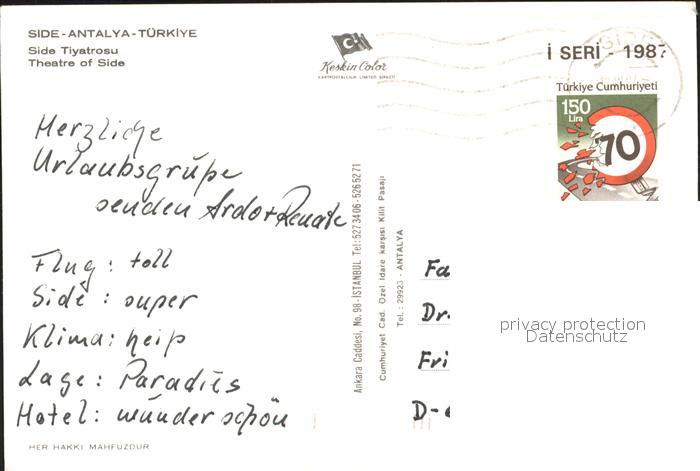 SIDE - ANTALYA - TÜRKİYE
Side Tiyatrosu
Theatre of Side
Keskin Color
KARTPOSTALCILIK LIMITED ŞİRKETİ
İ SERİ - 1987
SİDE
Türkiye Cumhuriyeti
150
Lira
70
Herzliche
Urlaubsgrüße
senden Ardo + Renate
Flug: toll
Side: super
Klima: heiß
Lage: Paradies
Hotel: wunderschön
Ankara Caddesi, No. 98 - İSTANBUL Tel: 5273406 - 5265271
Cumhuriyet Cad. Özel İdare karşısı Kilit Pasajı
Tel.: 29923 - ANTALYA
Fa
Dr.
Fri
D-
privacy protection
Datenschutz
HER HAKKI MAHFUZDUR